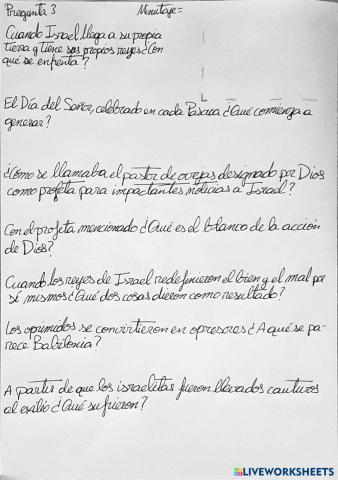 Pregunta 3 Minutaje=
Cuando Israel llega a su propia
tierra y tiene sus propios reyes ¿Con
qué se enfrenta?
El Día del Señor, celebrado en cada Pascua ¿Qué comienza a
generar?
¿Cómo se llamaba el pastor de ovejas designado por Dios
como profeta para impactantes noticias a Israel?
Con el profeta mencionado ¿Qué es el blanco de la acción
de Dios?
Cuando los reyes de Israel redefinieron el bien y el mal por
sí mismos ¿Qué dos cosas dieron como resultado?
Los oprimidos se convirtieron en opresores ¿A qué se pa-
rece Babilonia?
A partir de que los israelitas fueron llevados cautivos
al exilio ¿Qué sufrieron?
LIVEWORKSHEETS